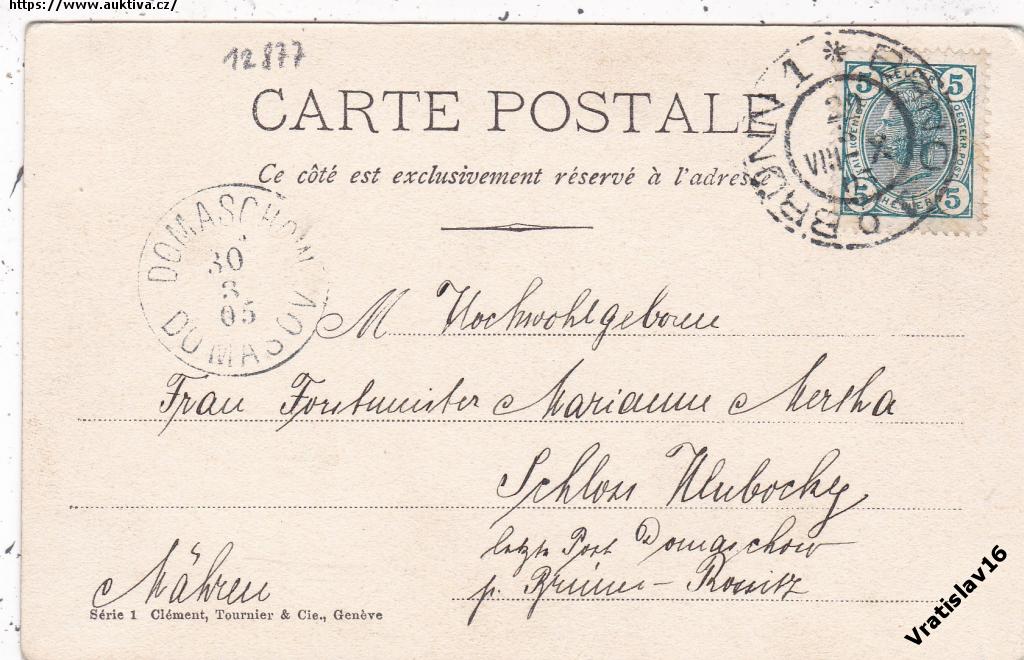 https://www.auktiva.cz/
12877
CARTE POSTALE
Ce côté est exclusivement réservé à l'adresse
BRÜNN 1 * BRNO 1
VIII
5 HELLER 5
5 HELLER 5
DOMASCHOW
30
8
05
DOMASOV
M Hochwohlgeboren
Frau Forstmeister Marianne Mertha
Schloss Hlubocky
letzte Post Domaschow
p. Brünn - Rossitz
Mähren
Série 1 Clément, Tournier & Cie., Genève
Vratislav16